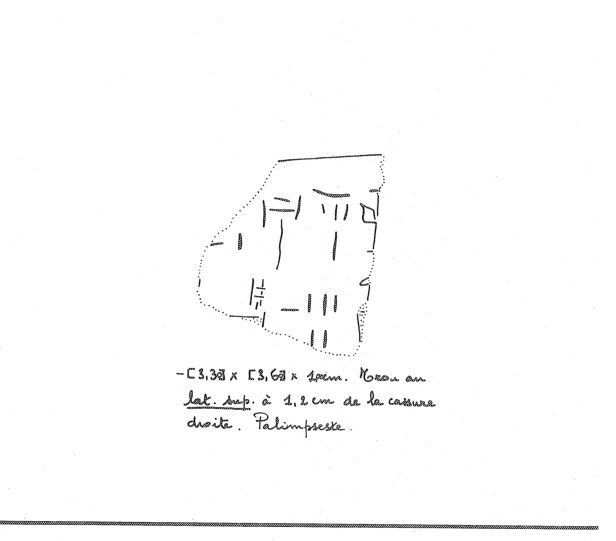 -[3,3] x [3,6] x 1cm. Trou au
lat. sup. à 1,2 cm de la cassure
droite. Palimpseste.